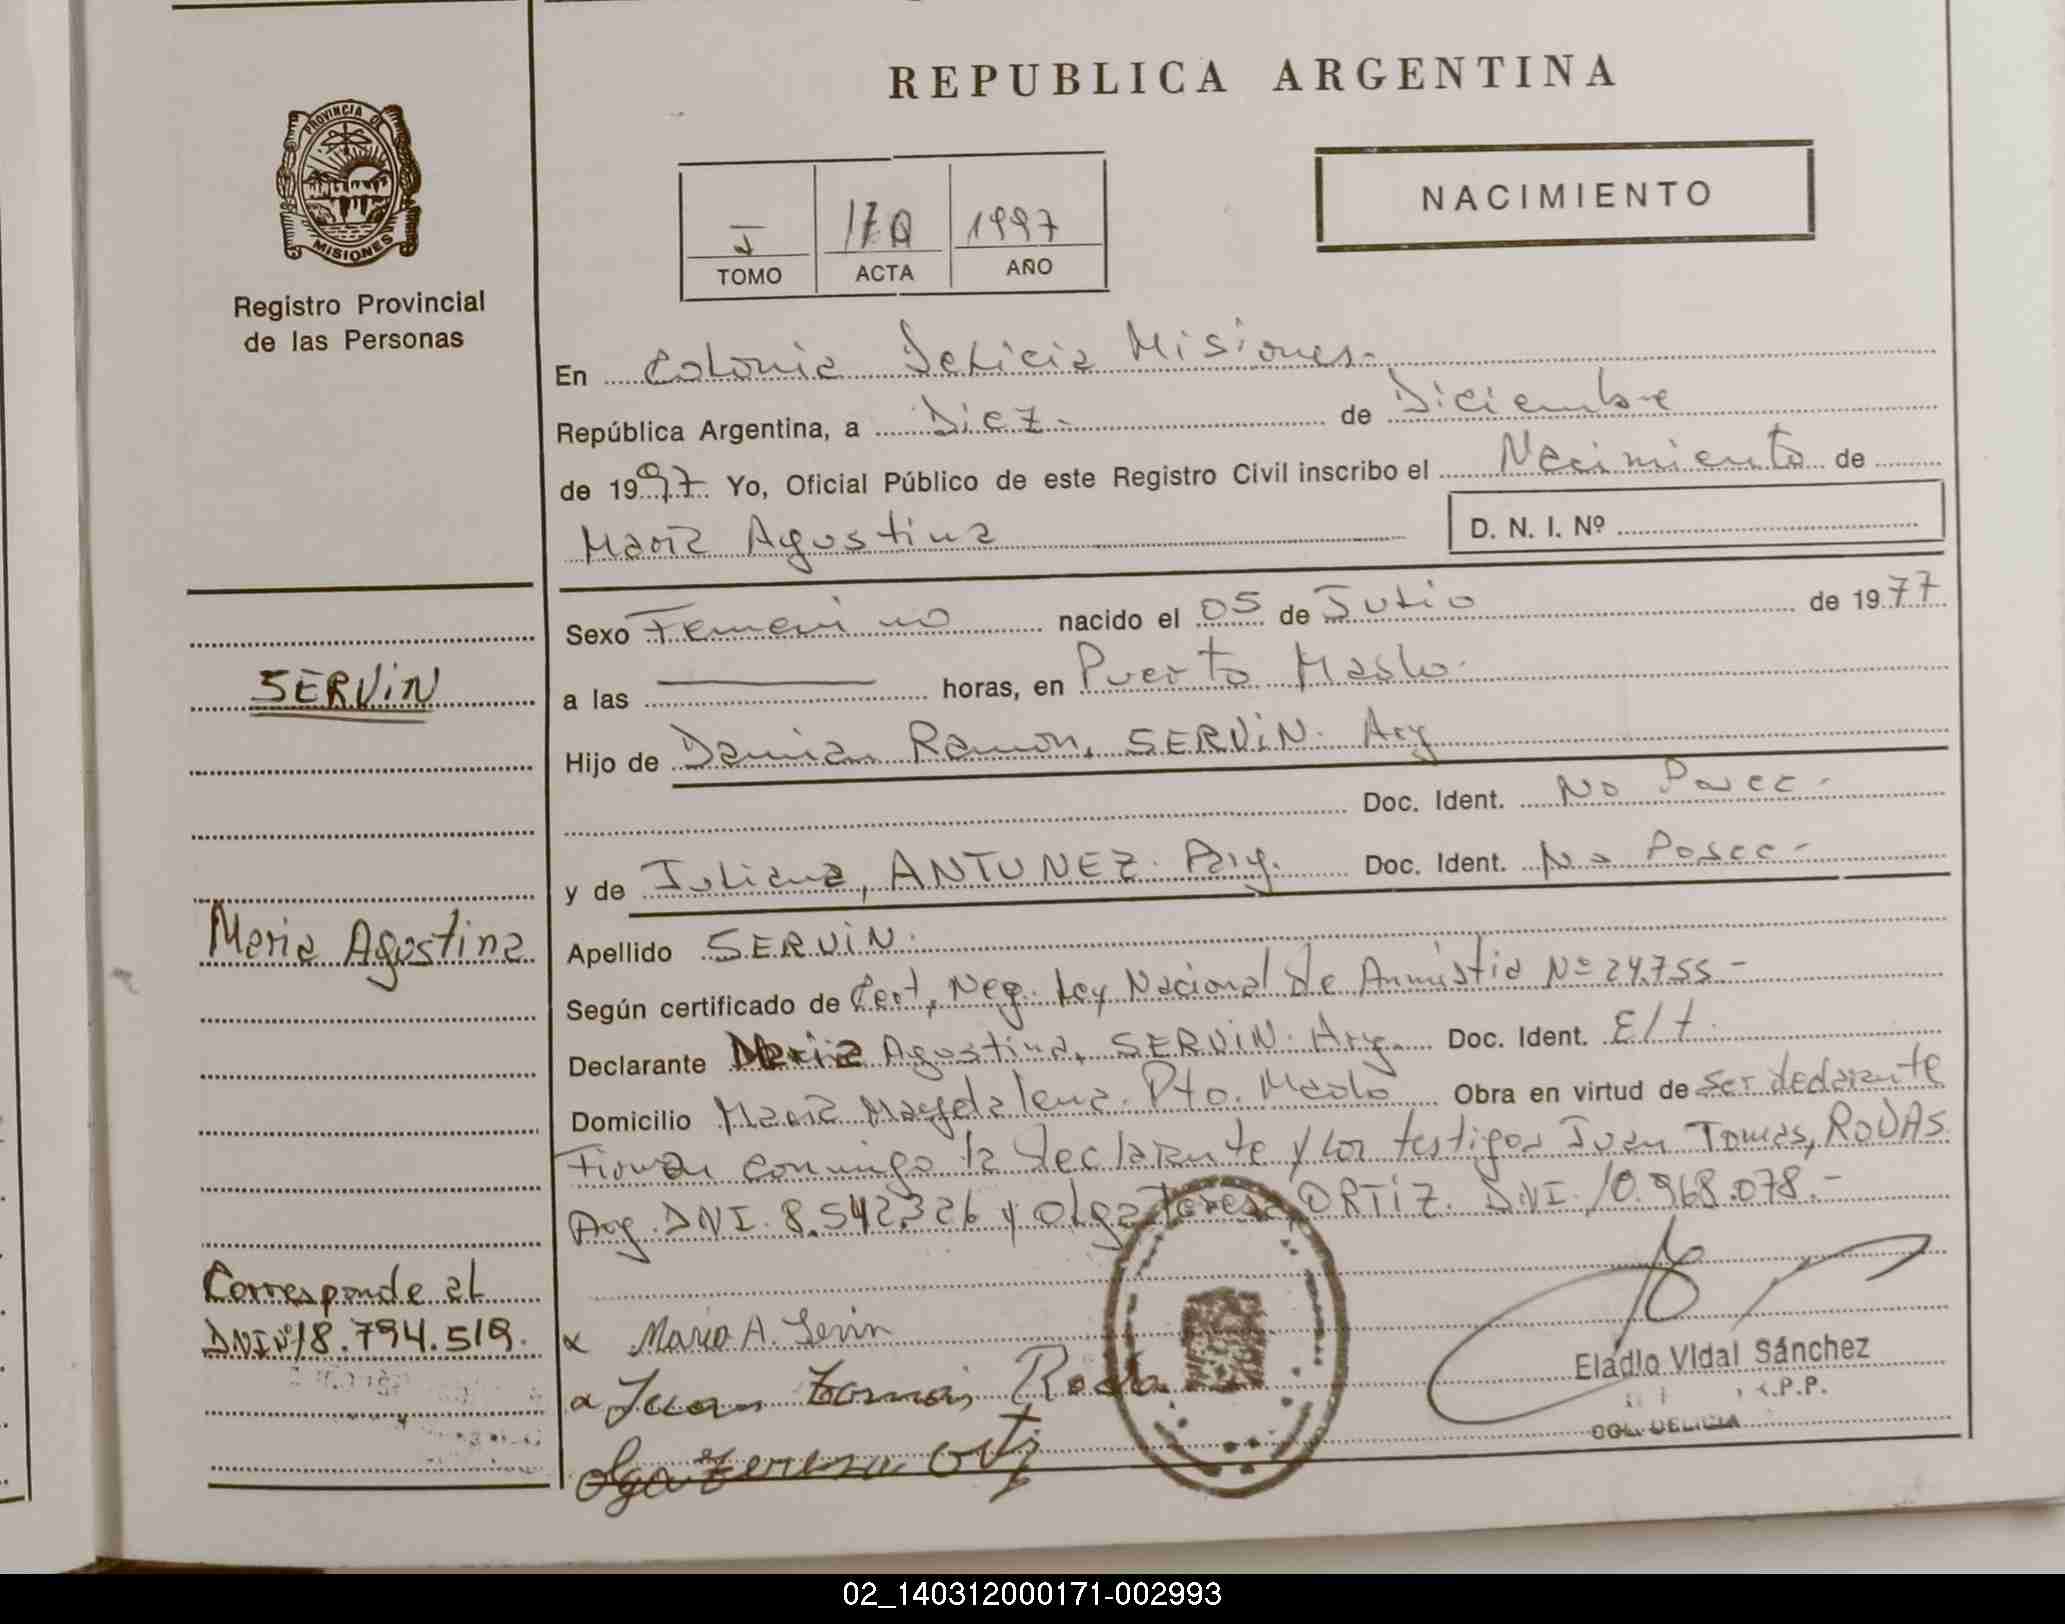 REPUBLICA ARGENTINA
PROVINCIA DE
MISIONES
Registro Provincial
de las Personas
NACIMIENTO
I 1997
TOMO ACTA AÑO
En Colonia Delicia Misiones.-
República Argentina, a Diez.- de Diciembre
de 1997. Yo, Oficial Público de este Registro Civil inscribo el Nacimiento de
Maria Agustina
D. N. I. Nº
Sexo Femenino nacido el 05 de Julio de 1977
a las ——— horas, en Puerto
SERViN
Hijo de Damian Ramon, SERViN. Arg
Doc. Ident. No Posee -
y de Juliana, ANTUNEZ. Arg. Doc. Ident. No Posee -
Maria Agustina
Apellido SERViN.
Según certificado de Cert. Neg. Ley Nacional de Amnistia Nº 24.755 -
Declarante Maria Agustina, SERViN. Arg. Doc. Ident. E/t.
Domicilio Maria Magdalena. Pto. Obra en virtud de ser declarante
Firman conmigo la declarante y los testigos Juan Tomas, RODAS
Arg. DNI. 8.542.326 y Olga Teresa, ORTiZ. DNI. 10.968.078.-
Corresponde al
DNI Nº 18.794.519.
x Maria A. Servin
x Juan Tomas Roda
Olga Teresa Ortiz
Eladio Vidal Sánchez
R.P.P.
COL. DELICIA
02_140312000171-002993